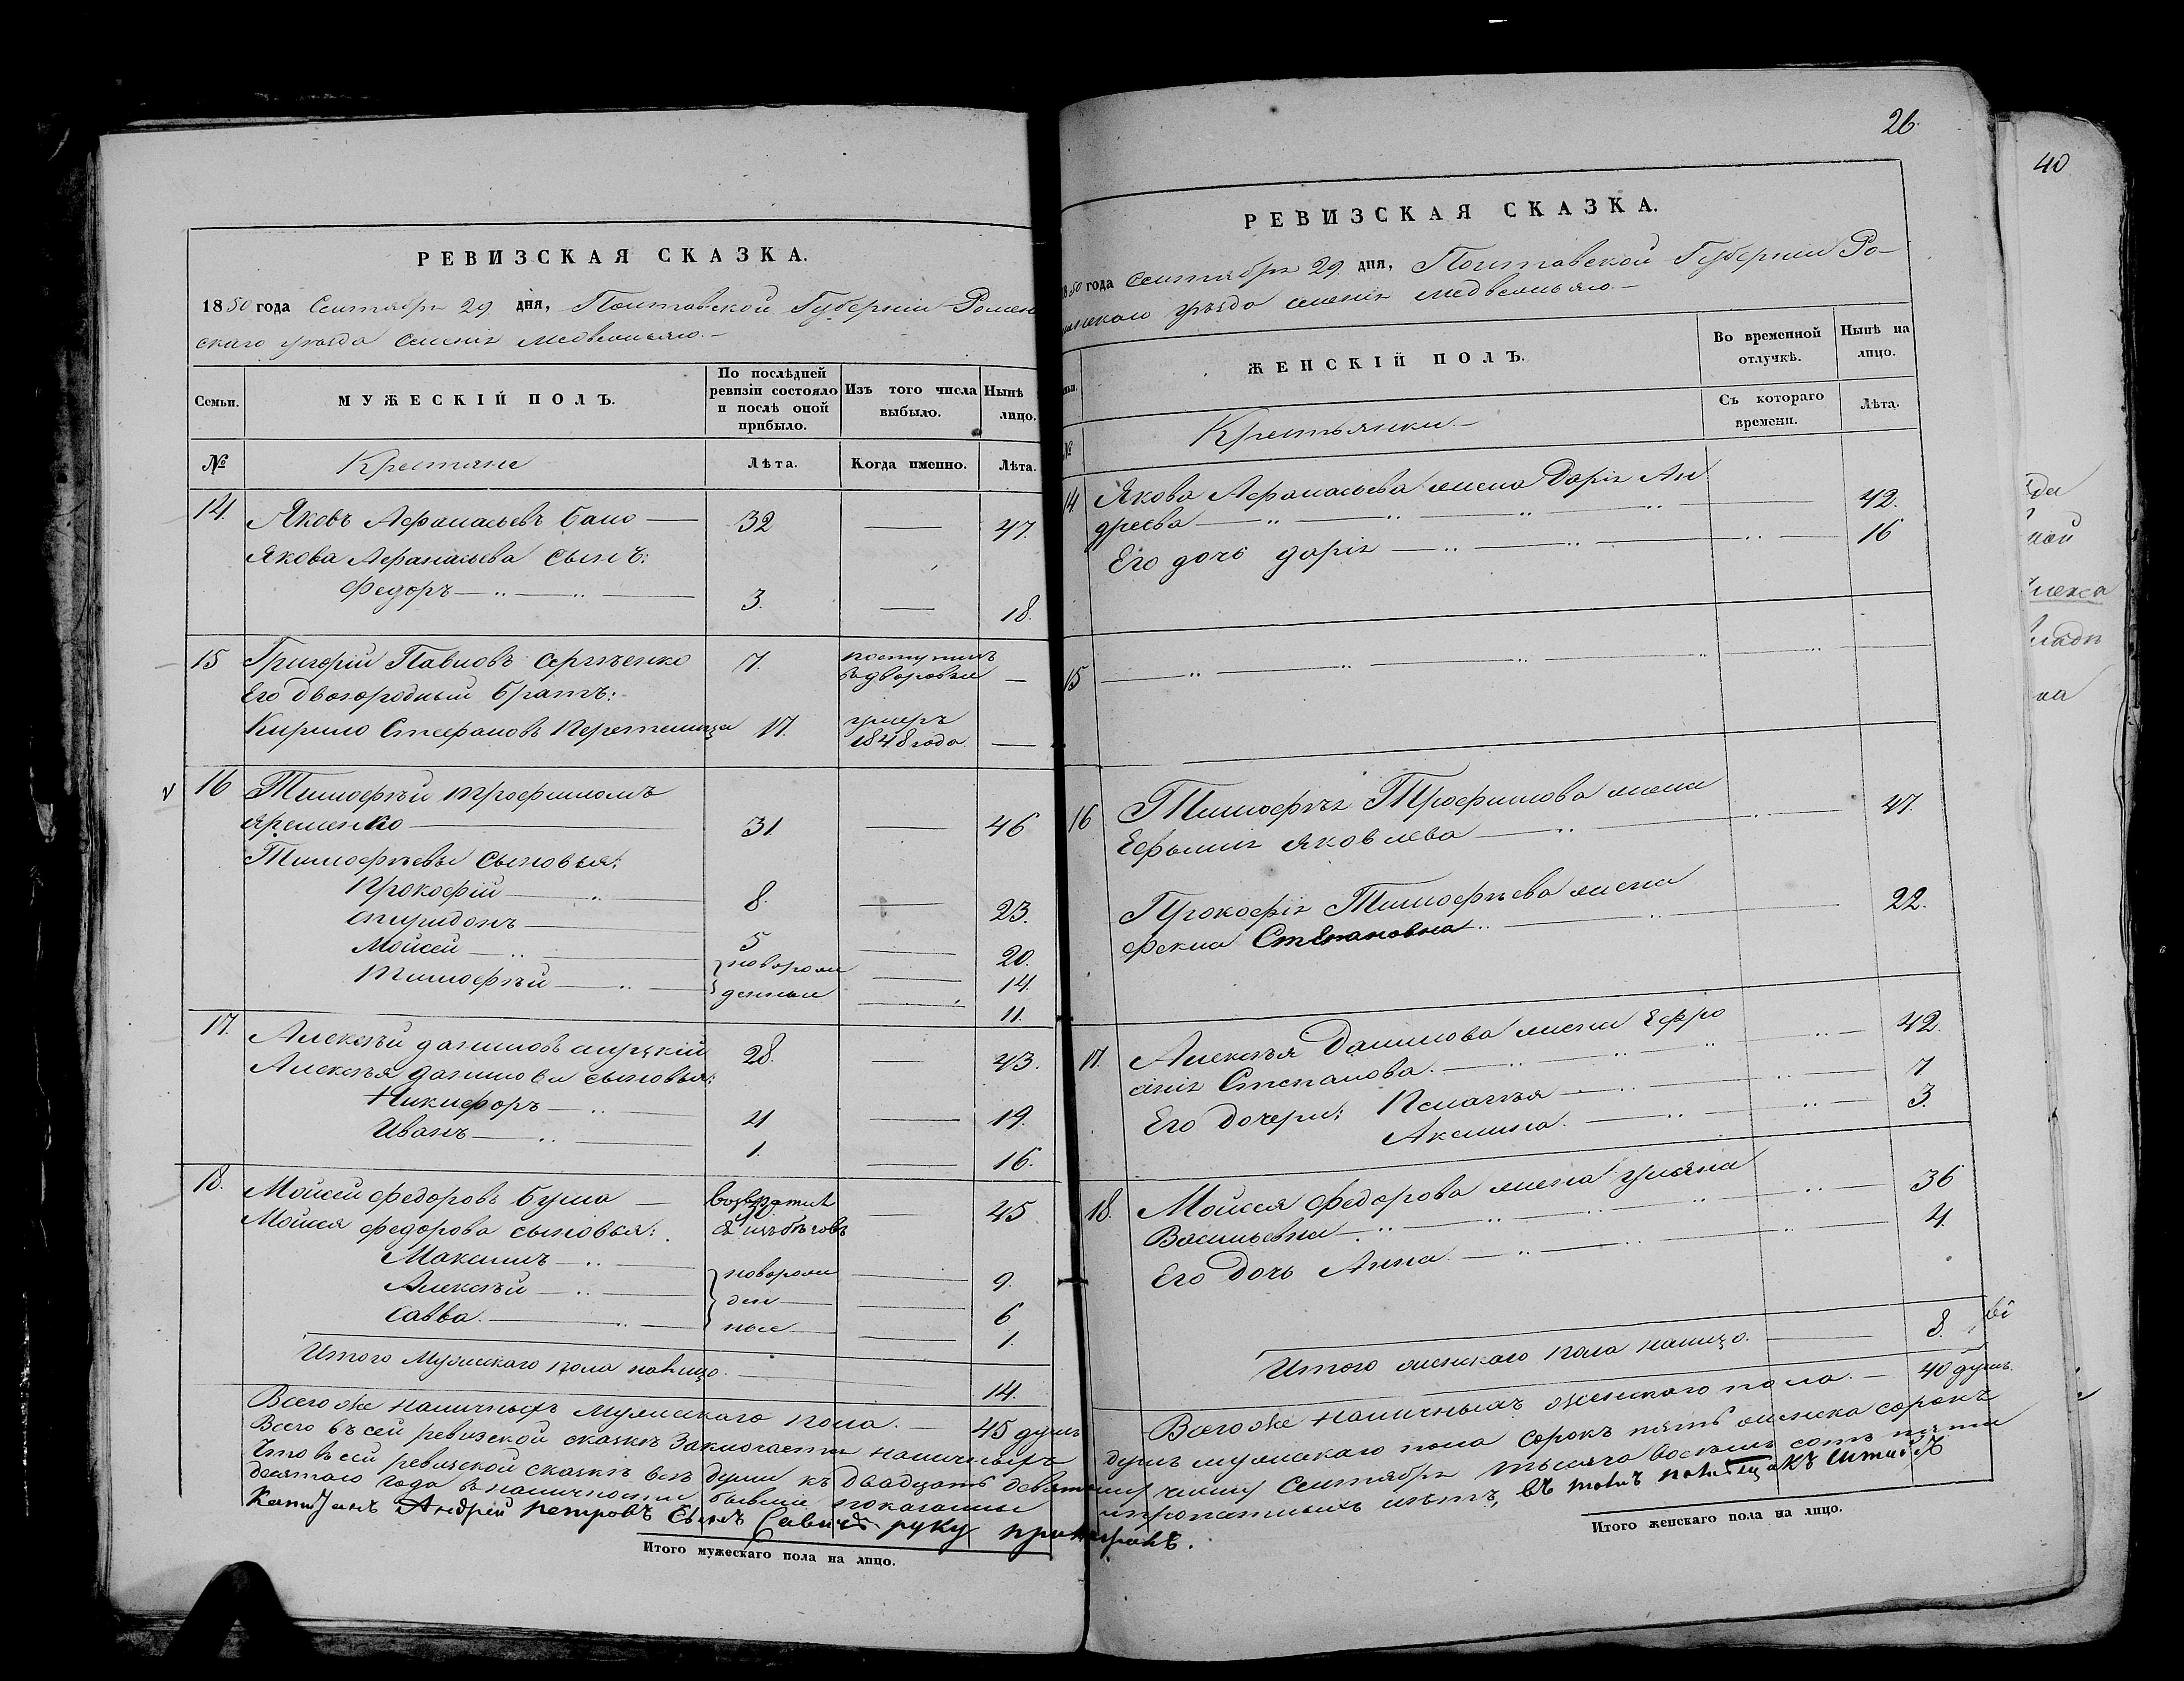 РЕВИЗСКАЯ СКАЗКА.
1850 года Сентября 29 дня, Полтавской Губернiи Ромен
скаго уезда селенiя
Семьи.
МУЖЕСКIЙ ПОЛЪ.
По послѣдней ревизiи состояло и послѣ оной прибыло.
Изъ того числа выбыло.
Нынѣ лицо.
№
Крестяне
Лѣта.
Когда именно.
Лѣта.
14. Яковъ Афанасьевъ Бано — 32 — 47.
Якова Афанасьева сынъ:
Федоръ — 3. — 18.
15 Григорiй Павловъ Сергѣенко 7. поступилъ
въ дворовые —
Его двоюродный братъ:
Кирило Стефановъ 17. умеръ
1848 года —
16 Тимофѣй Трофимовъ
Яременко — 31 — 46
Тимофѣевы сыновья:
Прокофiй — 8. — 23.
Спиридонъ — 5 — 20.
Мойсей — новорож — 14.
Тимофѣй — денные — 11.
17. Алексѣй Даниловъ 28. — 43.
Алексѣя Данилова сыновья:
Никифоръ — 4 — 19.
Иванъ — 1. — 16.
18. Мойсей Федоровъ Бума — возвратил — 45
Мойсея Федорова сыновья: ся изъ бѣговъ
Максимъ — новорож — 9.
Алексѣй — ден — 6
Савва. — ные — 1.
Итого Мужескаго пола налицо. — 14.
Всего же наличныхъ мужескаго пола. — 45 душъ
Всего въ сей ревизской сказкѣ заключается наличныхъ
Что въ сей ревизской сказкѣ всѣ души къ двадцать девятому
десятаго года въ наличности бывшiе показанны
Андрей Петровъ Сынъ Савичъ руку приложилъ.
Итого мужескаго пола на лицо.
26.
РЕВИЗСКАЯ СКАЗКА.
1850 года Сентября 29. дня, Полтавской Губернiи Ро-
менскаго уѣзда селенiя
ЖЕНСКIЙ ПОЛЪ.
Во временной отлучкѣ.
Нынѣ на лицо.
№
Крестьянки.
Съ котораго времени.
Лѣта.
14 Якова Афанасьева жена Дарiя Ан
дреева — 42.
Его дочь Дарiя — 16
15 —
16 Тимофѣя Трофимова жена
Ефимiя Яковлева — 47.
Прокофiя Тимофѣева жена
Фекла Степановна — 22.
17. Алексѣя Данилова жена Ефро
сiнiя Степанова. — 42.
Его дочери: Пелагѣя — 7
Аксинiа. — 3.
18. Мойсея Федорова жена Ульяна
Васильевна — 36
Его дочь Анна — 4.
Итого женскаго пола налицо. — 8.
Всего же наличныхъ женскаго пола. — 40 душъ.
душъ мужескаго пола сорокъ пять женска сорокъ
числу Сентября тысяча восемь сотъ пяти
нѣтъ, въ томъ
Итого женскаго пола на лицо.
40